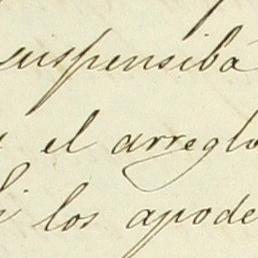 suspensibá
el arreglo
los apode